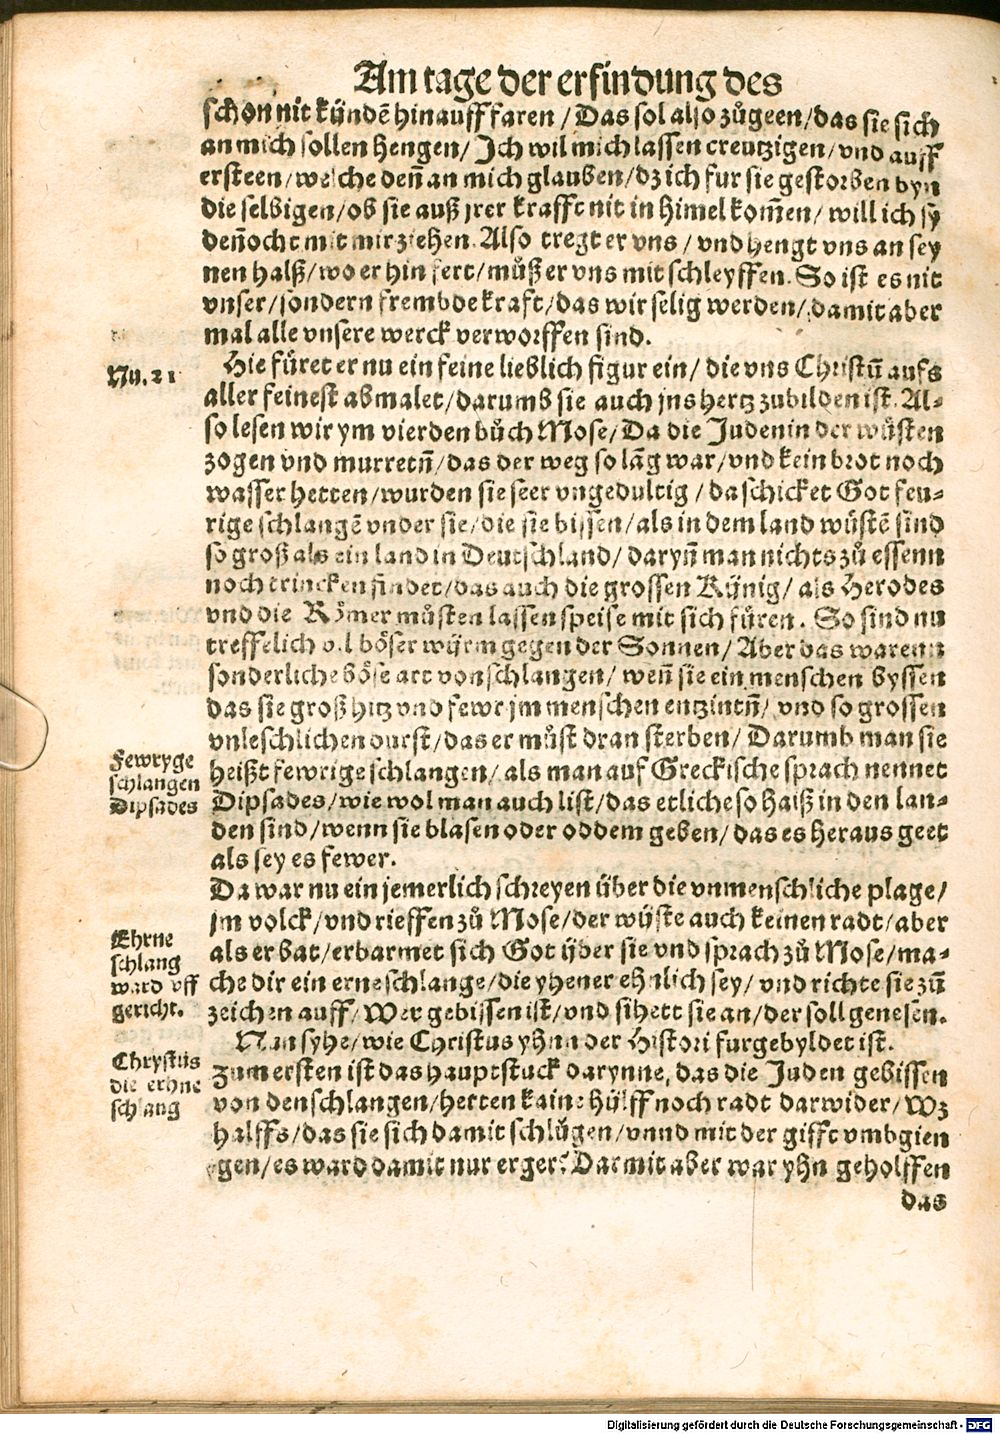 Am tage der erfindung des
schon nit kündẽ hinauff faren / Das sol also zůgeen/das sie sich
an mich sollen hengen/ Ich wil mich lassen creutzigen/vnd auff
ersteen/welche deñ an mich glauben/dz ich fur sie gestorben byn
die selbigen/ob sie auß jrer krafft nit in himel kom̃en/ will ich sy
deñocht mit mir ziehen. Also tregt er vns / vnd hengt vns an sey
nen halß/wo er hin fert/můß er vns mit schleyffen. So ist es nit
vnser/sondern frembde kraft/das wir selig werden/damit aber
mal alle vnsere werck verworffen sind.
Nu. 21
Hie füret er nu ein feine lieblich figur ein/die vns Christũ aufs
aller feinest abmalet/darumb sie auch jns hertz zubilden ist. Al-
so lesen wir ym vierden bůch Mose/Da die Juden in der wüsten
zogen vnd murretñ/das der weg so lãg war/vnd kein brot noch
wasser hetten/wurden sie seer vngedultig / da schicket Got feu-
rige schlangẽ vnder sie/die sie bissen/als in dem land wüstẽ sind
so groß als ein land in Deutschland/daryñ man nichts zů essenn
noch trincken findet/das auch die grossen Künig/ als Herodes
vnd die Römer můsten lassen speise mit sich füren. So sind nu
treffelich vil böser würm gegen der Sonnen/Aber das warenn
sonderliche böse art von schlangen/ weñ sie ein menschen byssen
das sie groß hitz vnd fewr jm menschen entzintñ/ vnd so grossen
vnleschlichen durst/das er můst dran sterben/ Darumb man sie
Fewryge
schlangen
Dipsades
heißt fewrige schlangen/als man auf Greckische sprach nennet
Dipsades/wie wol man auch list/das etliche so haiß in den lan-
den sind/wenn sie blasen oder oddem geben/das es heraus geet
als sey es fewer.
Da war nu ein jemerlich schreyen über die vnmenschliche plage/
jm volck/vnd rieffen zů Mose/der wüste auch keinen radt/aber
Ehrne
schlang
ward vff
gericht.
als er bat/erbarmet sich Got über sie vnd sprach zů Mose/ma-
che dir ein erne schlange/die yhener ehnlich sey/ vnd richte sie zũ
zeichen auff/Wer gebissen ist/vnd sihett sie an/der soll genesen.
Nun syhe/wie Christus yhnn der Histori furgebyldet ist.
Chrystus
die erhne
schlang
zum ersten ist das hauptstuck darynne, das die Juden gebissen
von den schlangen/hetten kaine hülff noch radt darwider/Wz
halffs/das sie sich damit schlůgen/vnnd mit der gifft vmbgien
gen/es ward damit nur erger? Darmit aber war yhn geholffen
das
Digitalisierung gefördert durch die Deutsche Forschungsgemeinschaft - DFG